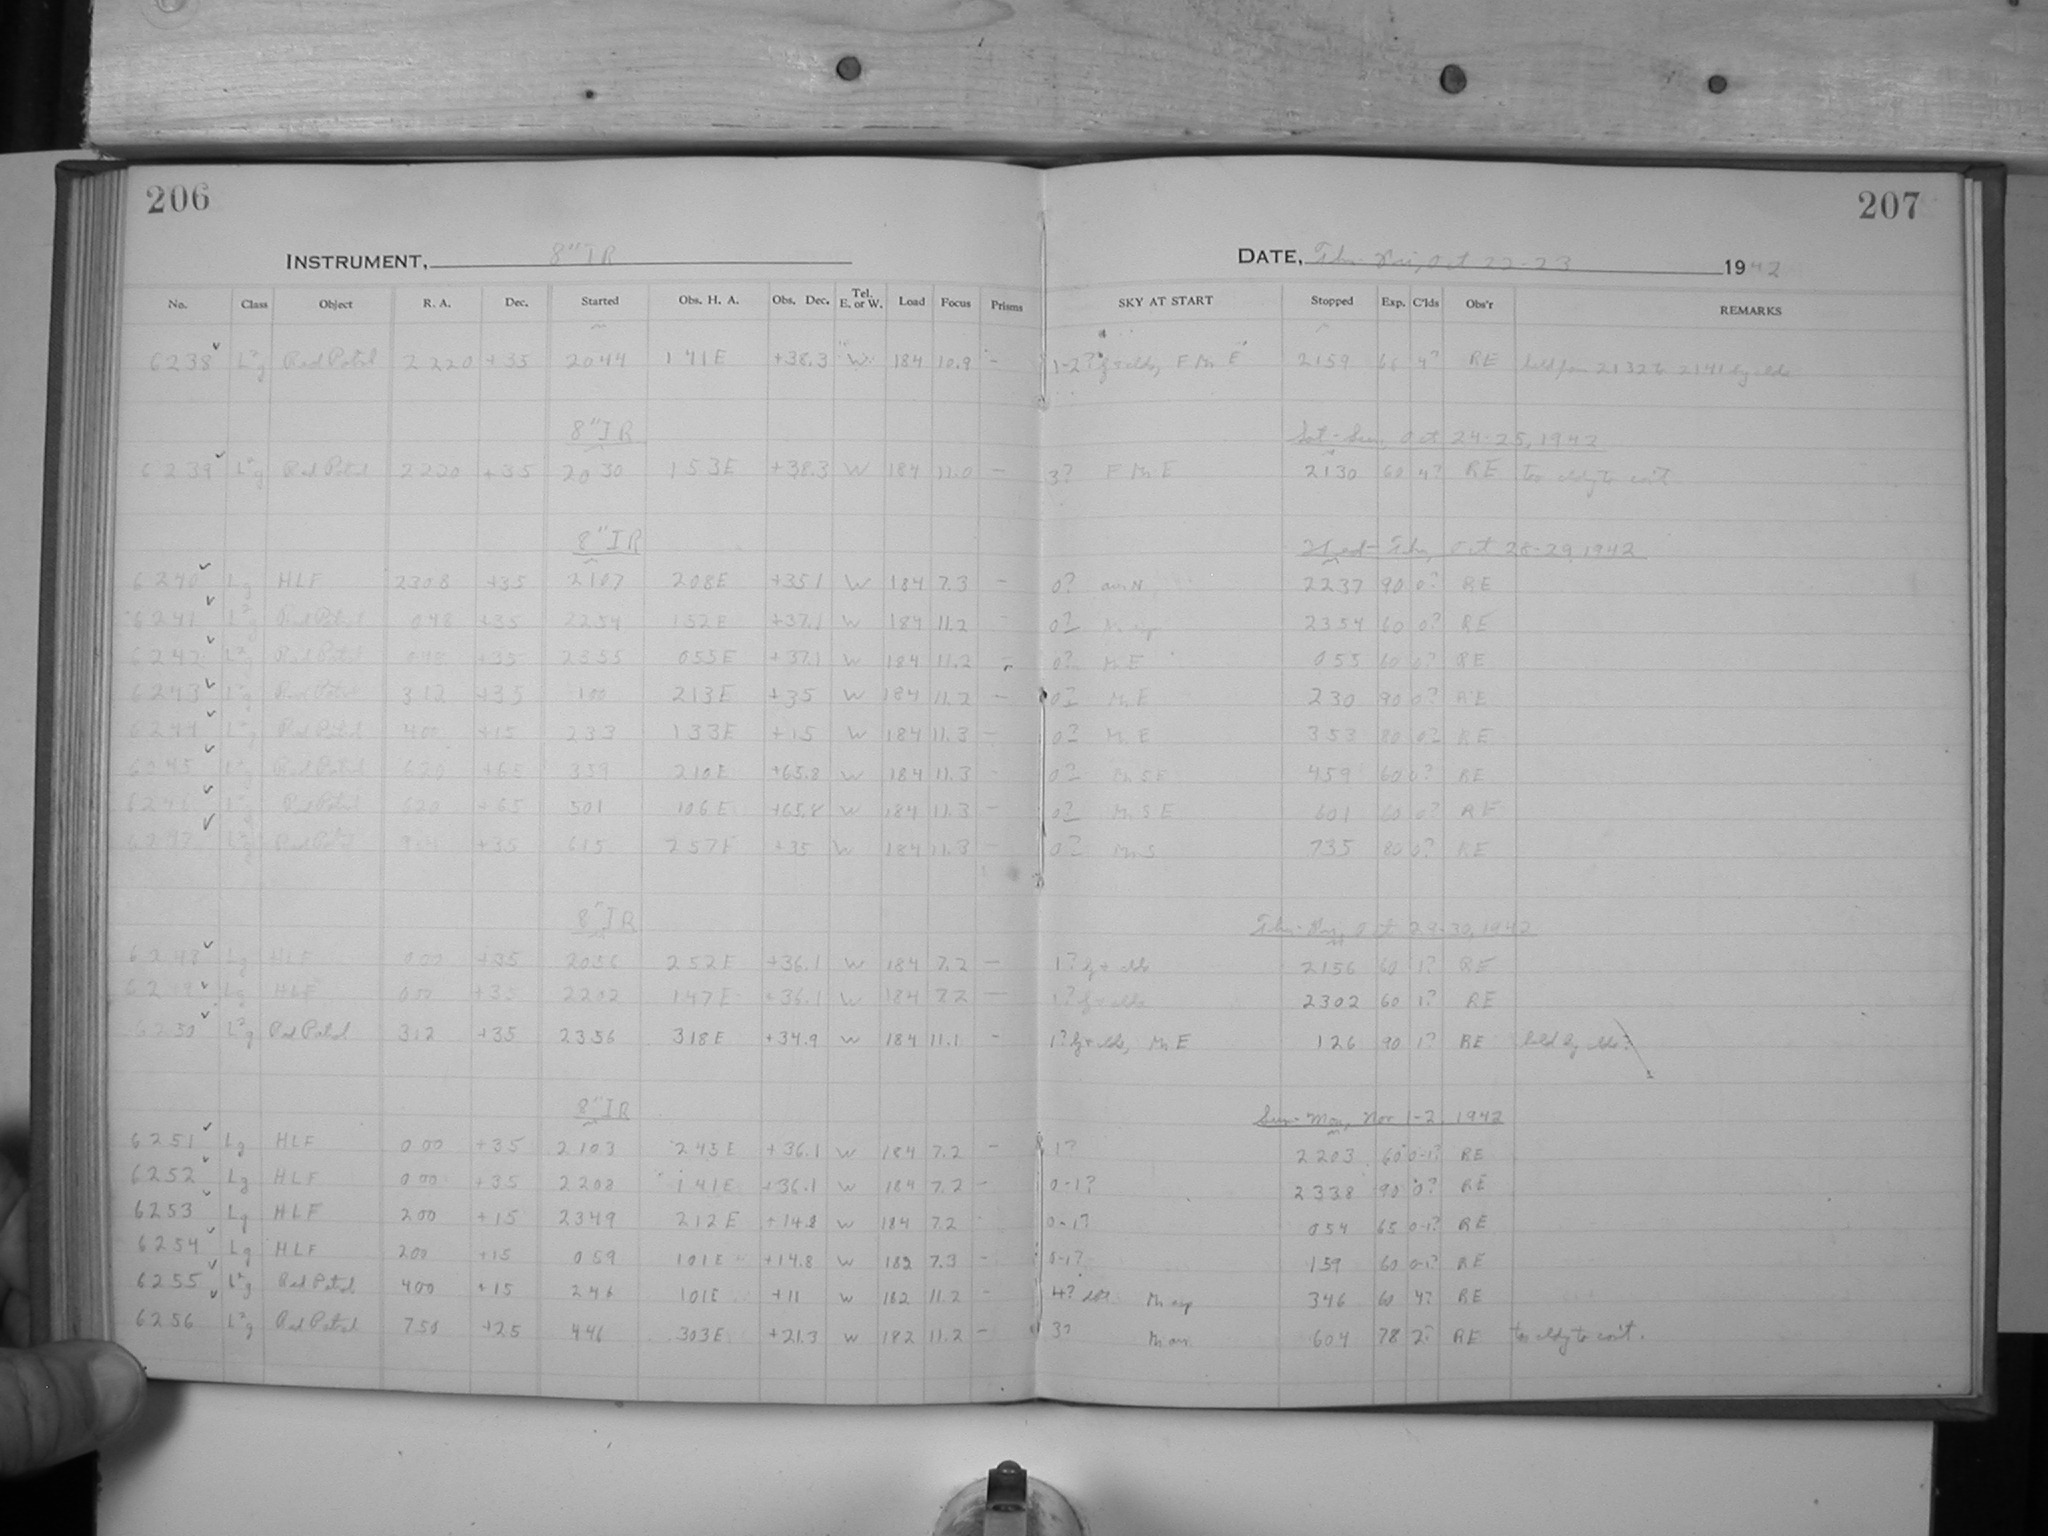 206
207
INSTRUMENT, 8" IR
DATE, Thu-Fri, Oct 22-23 1942
No. Class Object R. A. Dec. Started Obs. H. A. Obs. Dec. Tel. E. or W. Load Focus Prisms SKY AT START Stopped Exp. C'lds Obs'r REMARKS
6238 L²g Rad Patrol 2220 +35 2044 141E +38.3 W 184 10.9 – 1-2? F M E 2159 66 4? RE held from 2132 to 2141 by clds
8" IR Sat-Sun, Oct 24-25, 1942
6239 L²g Rad Patrol 2220 +35 2030 153E +38.3 W 184 11.0 – 3? F M E 2130 60 4? RE too cldy to con't
8" IR Wed-Thu, Oct 28-29, 1942
6240 Lg HLF 2308 +35 2107 208E +35.1 W 184 7.3 – 0? aur N 2237 90 0? RE
6241 L²g Rad Patrol 048 +35 2254 152E +37.1 W 184 11.2 – 0? 2354 60 0? RE
6242 L²g Rad Patrol 048 +35 2355 055E +37.1 W 184 11.2 – 0? M E 055 60 0? RE
6243 L²g Rad Patrol 312 +35 100 213E +35 W 184 11.2 – 0? M E 230 90 0? RE
6244 L²g Rad Patrol 400 +15 233 133E +15 W 184 11.3 – 0? M E 353 80 0? RE
6245 L²g Rad Patrol 620 +65 359 210E +65.8 W 184 11.3 – 0? M SE 459 60 0? RE
6246 L²g Rad Patrol 620 +65 501 106E +65.8 W 184 11.3 – 0? M S E 601 60 0? RE
6247 L²g Rad Patrol +35 615 257E +35 W 184 11.3 – 0? M S 735 80 0? RE
8" IR Thu-Fri, Oct 29-30, 1942
6248 Lg HLF 000 +35 2056 252E +36.1 W 184 7.2 – 1? 2156 60 1? RE
6249 Lg HLF 000 +35 2202 147E +36.1 W 184 7.2 – 1? 2302 60 1? RE
6250 L²g Rad Patrol 312 +35 2356 318E +34.9 W 184 11.1 – 1? M E 126 90 1? RE held by clds?
8" IR Sun-Mon, Nov 1-2, 1942
6251 Lg HLF 000 +35 2103 245E +36.1 W 184 7.2 – 1? 2203 60 0-1? RE
6252 Lg HLF 000 +35 2208 141E +36.1 W 184 7.2 – 0-1? 2338 90 0? RE
6253 Lg HLF 200 +15 2349 212E +14.8 W 184 7.2 0-1? 054 65 0-1? RE
6254 Lg HLF 200 +15 059 101E +14.8 W 182 7.3 – 0-1? 159 60 0-1? RE
6255 L²g Rad Patrol 400 +15 246 101E +11 W 182 11.2 – 4? 346 60 4? RE
6256 L²g Rad Patrol 750 +25 446 303E +21.3 W 182 11.2 – 3? 604 78 2? RE too cldy to con't.